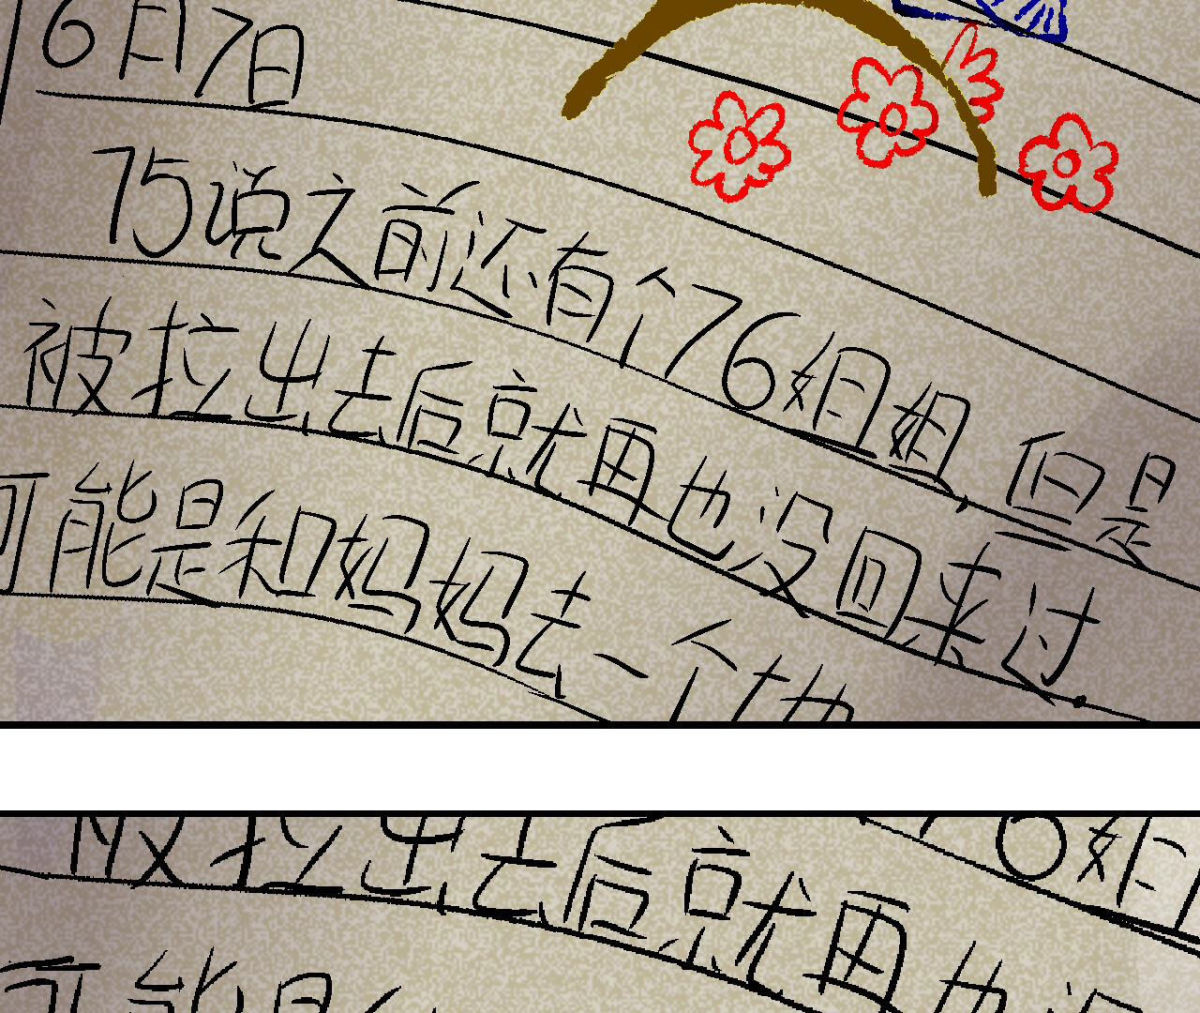 6月7日
75说之前还有个76姐姐但是
被拉出去后就再也没回来过.
可能是和妈妈去一个地
被拉出去后就再也没
6姐
可能是